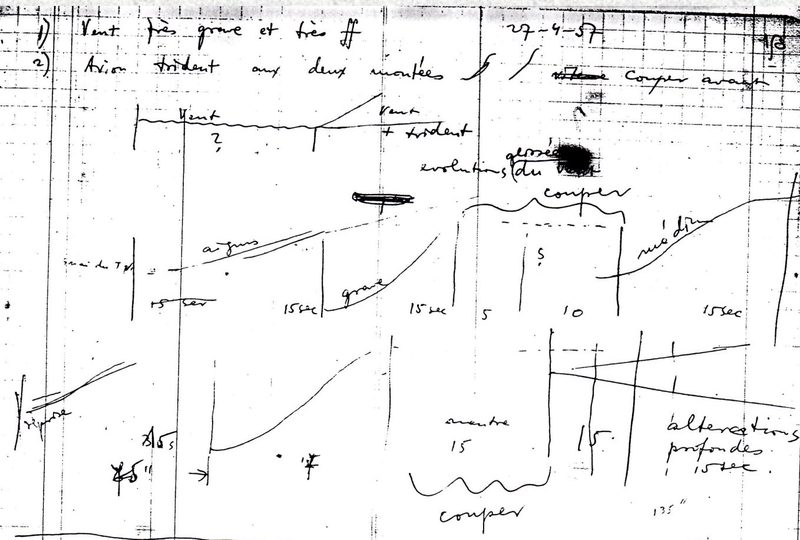 1) Vent très grave et très ff 27-4-57
2) Avion trident aux deux montées
couper avant
Vent
?
Vent
+ trident
evolutions (du vent
couper
aigus
15 sec
15 sec
grave
15 sec
5
5
10
médium
15 sec
reprise
15s
montre
15
couper
15
altercations
profondes
15 sec.
135"